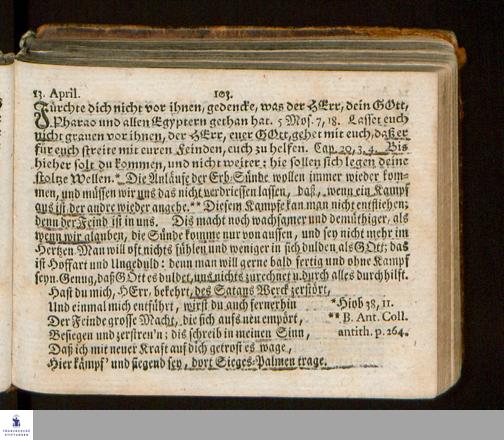 13. April. 103.
Fürchte dich nicht vor ihnen, gedencke, was der HErr, dein GOtt,
Pharao und allen Egyptern gethan hat. 5 Mos. 7, 18. Lasset euch
nicht grauen vor ihnen, der HErr, euer GOtt, gehet mit euch, daß er
für euch streite mit euren Feinden, euch zu helfen. Cap. 20, 3. 4. Bis
hieher solt du kommen, und nicht weiter: hie sollen sich legen deine
stoltze Wellen.* Die Anläufe der Erb-Sünde wollen immer wieder kom-
men, und müssen wir uns das nicht verdriessen lassen, daß, wenn ein Kampf
aus ist der andre wieder angehe.** Diesem Kampfe kan man nicht entfliehen;
denn der Feind ist in uns. Dis macht noch wachsamer und demüthiger, als
wenn wir glauben, die Sünde komme nur von aussen, und sey nicht mehr im
Hertzen. Man will oft nichts fühlen und weniger in sich dulden als GOtt; das
ist Hoffart und Ungedult: denn man will gerne bald fertig und ohne Kampf
seyn. Genug, daß GOtt es duldet, uns nichts zurechnet u. durch alles durchhilft.
Hast du mich, HErr, bekehrt, des Satans Werck zerstört,
Und einmal mich entführt, wirst du auch fernerhin *Hiob 38, 11.
Der Feinde grosse Macht, die sich aufs neu empört, ** B. Ant. Coll.
Besiegen und zerstreu'n; dis schreib in meinen Sinn, antith. p. 264.
Daß ich mit neuer Kraft auf dich getrost es wage,
Hier kämpf' und siegend sey, dort Sieges-Palmen trage.